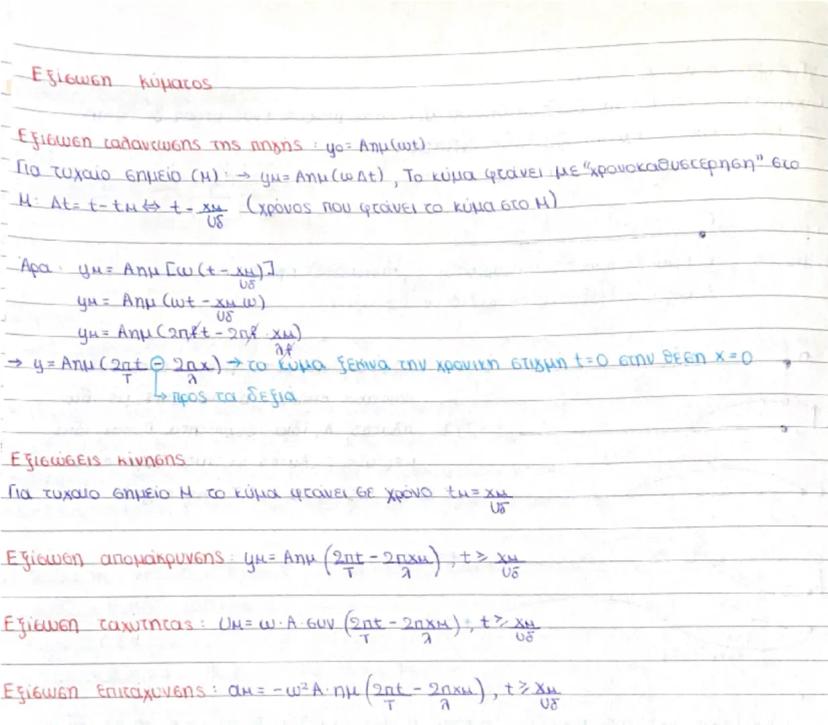 Εξίσωση κύματος
Εξίσωση ταλάντωσης της πηγής: y₀ = Aημ(ωt)
Για τυχαίο σημείο (Μ): → yμ = Aημ(ωΔt), Το κύμα φτάνει με "χρονοκαθυστέρηση" στο
Μ: Δt = t - tμ ⇔ t - xμ/υδ (χρόνος που φτάνει το κύμα στο Μ)
Άρα: yμ = Aημ[ω(t - xμ/υδ)]
yμ = Aημ(ωt - xμ/υδ ω)
yμ = Aημ(2πft - 2πf · xμ/λf)
→ y = Aημ(2πt/T - 2πx/λ) → το κύμα ξεκινά την χρονική στιγμή t=0 στην θέση x=0
↳ προς τα δεξιά
Εξισώσεις κίνησης
Για τυχαίο σημείο Μ το κύμα φτάνει σε χρόνο tμ = xμ/υδ
Εξίσωση απομάκρυνσης: yμ = Aημ(2πt/T - 2πxμ/λ), t ≥ xμ/υδ
Εξίσωση ταχύτητας: υμ = ω·A·συν(2πt/T - 2πxμ/λ), t ≥ xμ/υδ
Εξίσωση επιτάχυνσης: αμ = -ω²A·ημ(2πt/T - 2πxμ/λ), t ≥ xμ/υδ